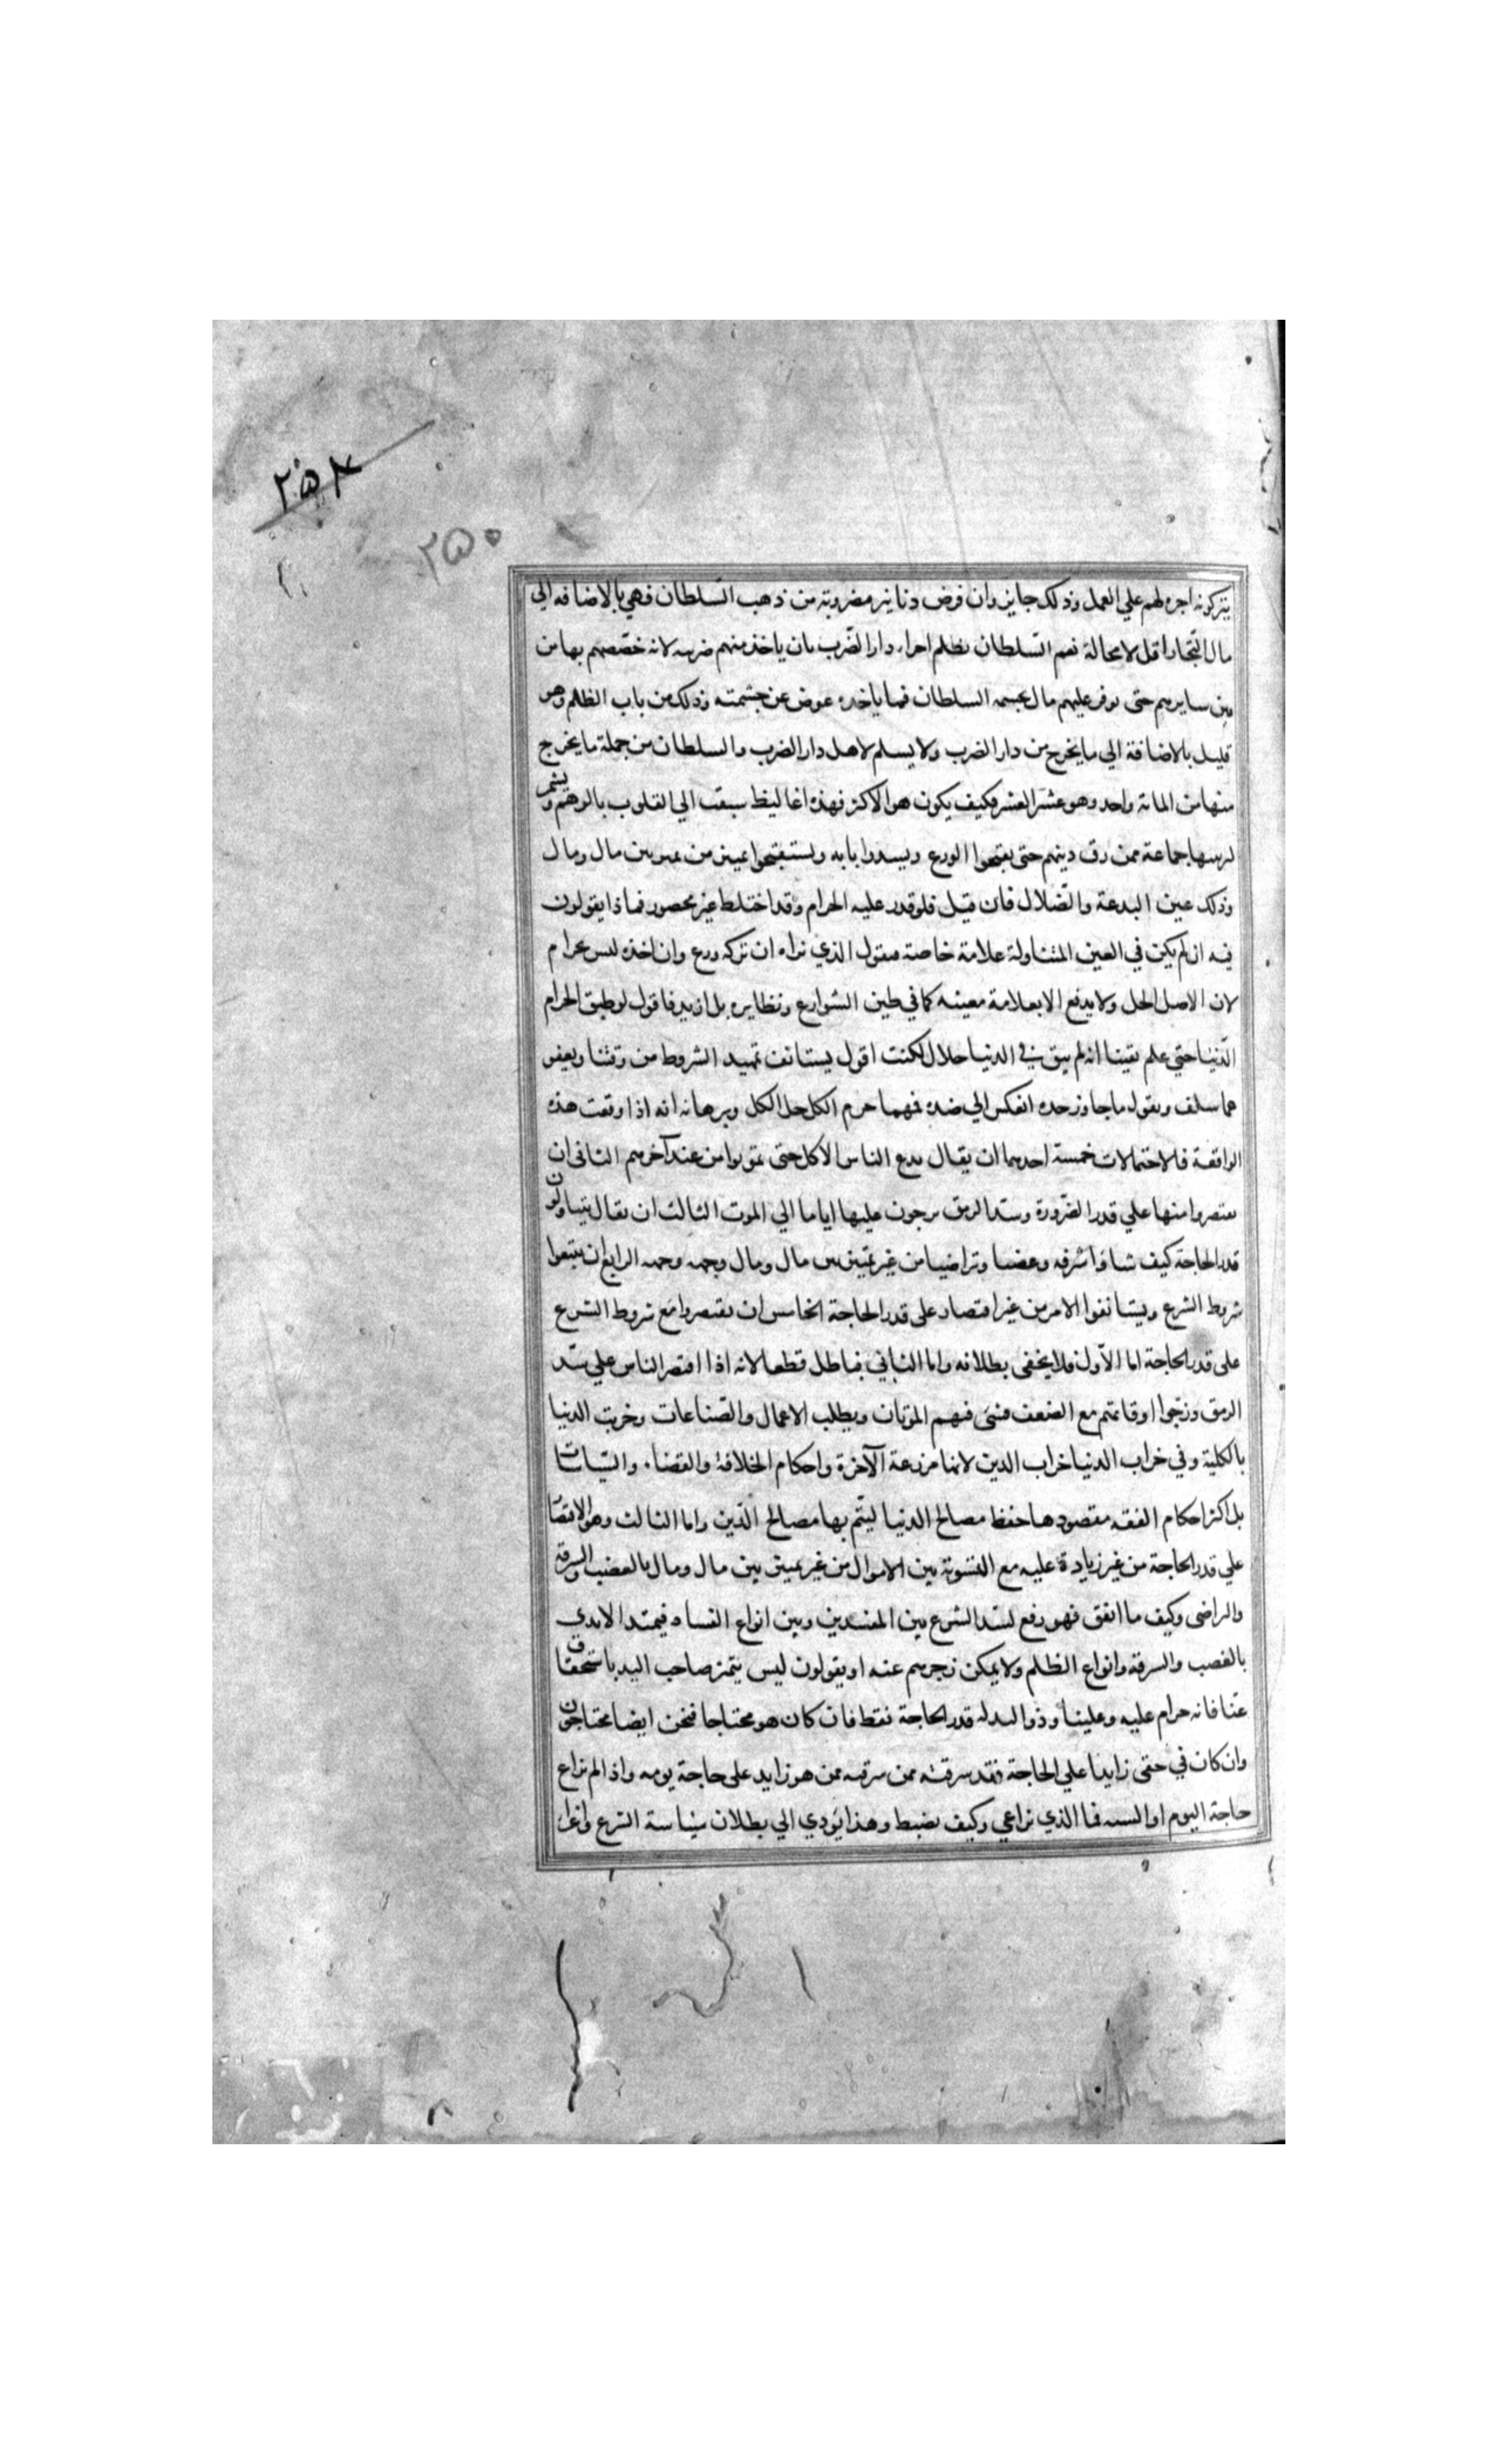 ٢٥٤
٢٥٠
يتركونه اجرة لهم علي العمل وذلك جايز وان فرض دنانير مضروبة من ذهب السّلطان فهي بالاضافه الي
مال التّجار اقل لا محالة نعم السّلطان يظلم اجراء دار الضّرب بان ياخذ منهم ضريبه لانه خصّصهم بها من
بين سايرهم حتى توفر عليهم مال بحشمه السلطان فما ياخذه عوض عن حشمته وذلك من باب الظلم وهو
قليل بالاضافة الي ما يخرج من دار الضرب ولا يسلم لاهل دار الضرب والسلطان من جملة ما يخرج
منها من المائة واحد وهو عشر العشر فكيف يكون هو الاكثر فهذه اغاليظ سبقت الي القلوب بالوهم ويشمر
لتزيينها جماعة ممن رق دينهم حتى يقبحوا الورع ويسدوا بابه ويستقبحوا تمييز من يميز بين مال ومال
وذلك عين البدعة والضّلال فان قيل فلو قدر غلبه الحرام وقد اختلط غير محصور فماذا يقولون
فيه ان لم يكن في العين المتناولة علامة خاصة فنقول الذي نراه ان تركه ورع وان اخذه ليس بحرام
لان الاصل الحل ولا يدفع الا بعلامة معينه كما في طين الشوارع ونظايره بل ازيد فاقول لو طبق الحرام
الدّنيا حتي علم يقينا انه لم يبق في الدنيا حلال لكنت اقول يستانف تمهيد الشروط من وقتنا ويعفو
عما سلف ونقول ما جاوز حده انعكس الي ضده فمهما حرم الكل حل الكل وبرهانه انه اذا وقعت هذه
الواقعة فالاحتمالات خمسة احدهما ان يقال يدع الناس الاكل حتى يموتوا من عند آخرهم الثاني ان
يقتصروا منها علي قدر الضّرورة وسدّ الرمق يزجون عليها اياما الي الموت الثالث ان يقال يتناولون
قدر الحاجة كيف شاؤا سرقه وغصبا وتراضيا من غير تمييز بين مال ومال وجهه وجهه الرابع ان يتبعوا
شروط الشرع ويستانفوا الامر من غير اقتصاد على قدر الحاجة الخامس ان يقتصروا مع شروط الشرع
على قدر الحاجة اما الاّول فلا يخفى بطلانه واما الثاني فباطل قطعا لانه اذا اقتصر الناس علي سدّ
الرمق وزجّوا اوقاتهم مع الضعف فشى فيهم الموتان وبطلت الاعمال والصّناعات وخربت الدنيا
بالكلية وفي خراب الدنيا خراب الدين لانها مزرعة الآخرة واحكام الخلافة والقضاء والسّياسات
بل اكثر احكام الفقه مقصودها حفظ مصالح الدنيا ليتم بها مصالح الدّين واما الثالث وهو الاقتصا
علي قدر الحاجة من غير زيادة عليه مع التسوية بين الاموال من غير تمييز بين مال ومال بالغضب والسرقة
والراضي وكيف ما اتفق فهو رفع لسدّ الشرع بين المفسدين وبين انواع الفساد فيمتد الايدي
بالغصب والسرقة وانواع الظلم ولا يمكن زجرهم عنه او يقولون ليس يتميز صاحب اليد باستحقاق
عنّا فانه حرام عليه وعلينا وذو اليد له قدر الحاجة فقط فان كان هو محتاجا فنحن ايضا محتاجون
وان كان في حقي زايدا علي الحاجة فقد سرقته ممن سرقه ممن هو زايد على حاجة يومه واذا لم نراع
حاجة اليوم او السنه فما الذي نراعي وكيف يضبط وهذا يؤدي الي بطلان سياسة الشرع واغراء